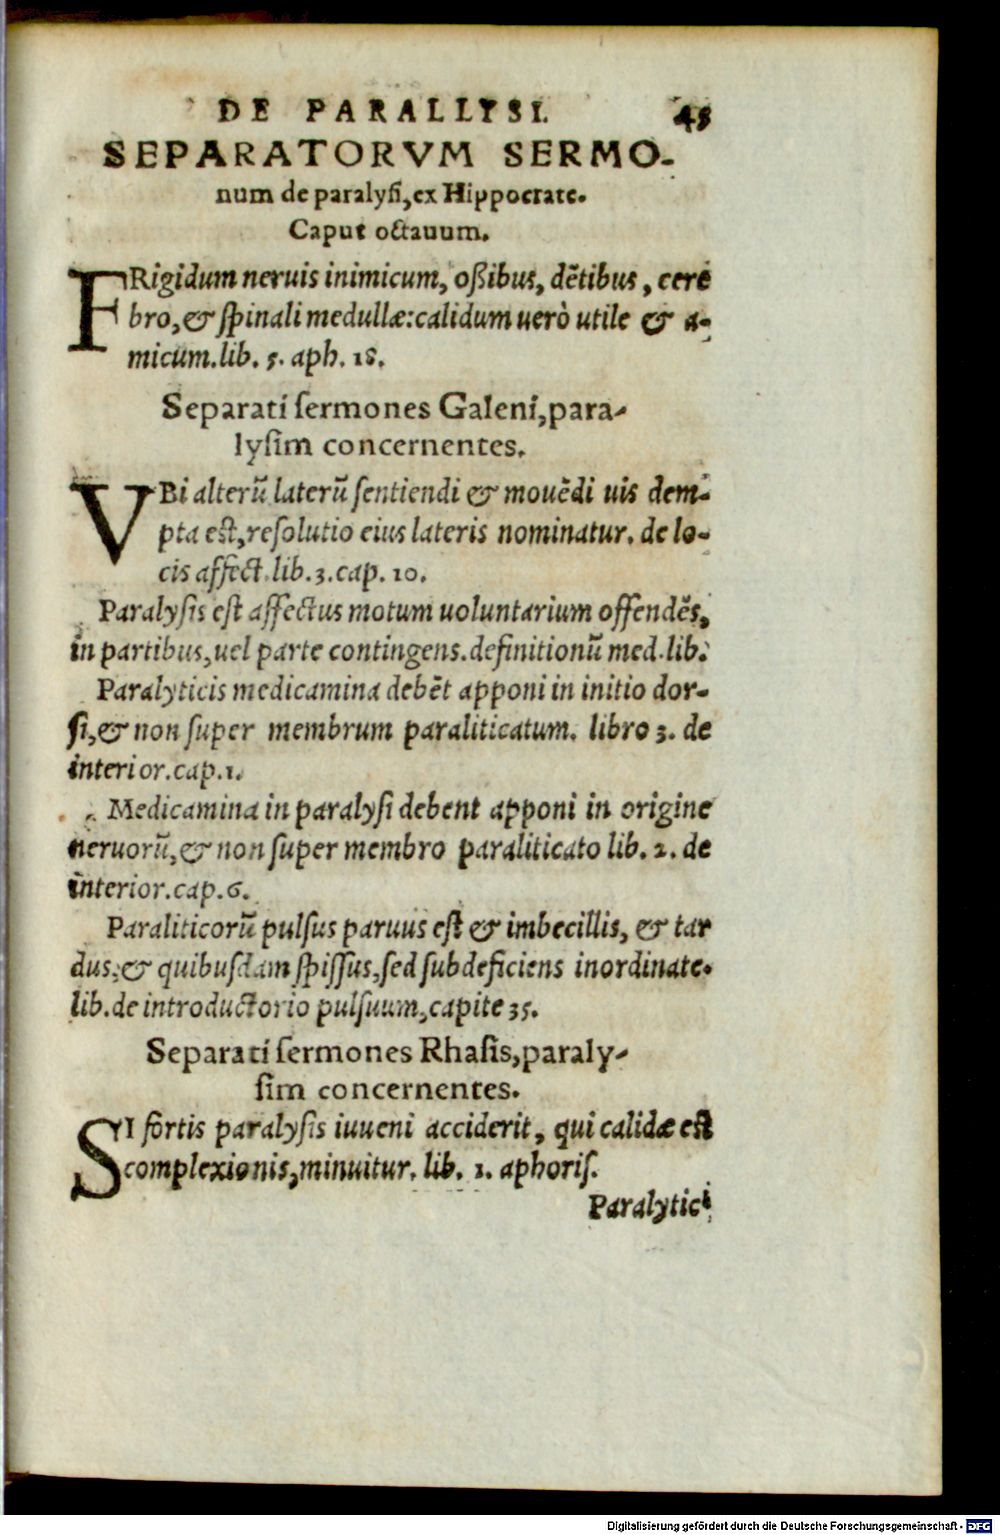 DE PARALLYSI. 45
SEPARATORVM SERMO-
num de paralysi, ex Hippocrate.
Caput octauum.
FRigidum neruis inimicum, oßibus, dētibus, cere
bro, & spinali medullæ: calidum uerò utile & a-
micum. lib. 5. aph. 18.
Separati sermones Galeni, para-
lysim concernentes.
VBi alterū laterū sentiendi & mouēdi uis dem-
pta est, resolutio eius lateris nominatur. de lo-
cis affect. lib. 3. cap. 10.
Paralysis est affectus motum uoluntarium offendēs,
in partibus, uel parte contingens. definitionū med. lib.
Paralyticis medicamina debēt apponi in initio dor-
si, & non super membrum paraliticatum. libro 3. de
interior. cap. 1.
Medicamina in paralysi debent apponi in origine
neruorū, & non super membro paraliticato lib. 2. de
interior. cap. 6.
Paraliticorū pulsus paruus est & imbecillis, & tar
dus: & quibusdam spissus, sed subdeficiens inordinate.
lib. de introductorio pulsuum, capite 35.
Separati sermones Rhasis, paraly-
sim concernentes.
SI fortis paralysis iuueni acciderit, qui calidæ est
complexionis, minuitur. lib. 1. aphoris.
Paralytici
Digitalisierung gefördert durch die Deutsche Forschungsgemeinschaft - DFG